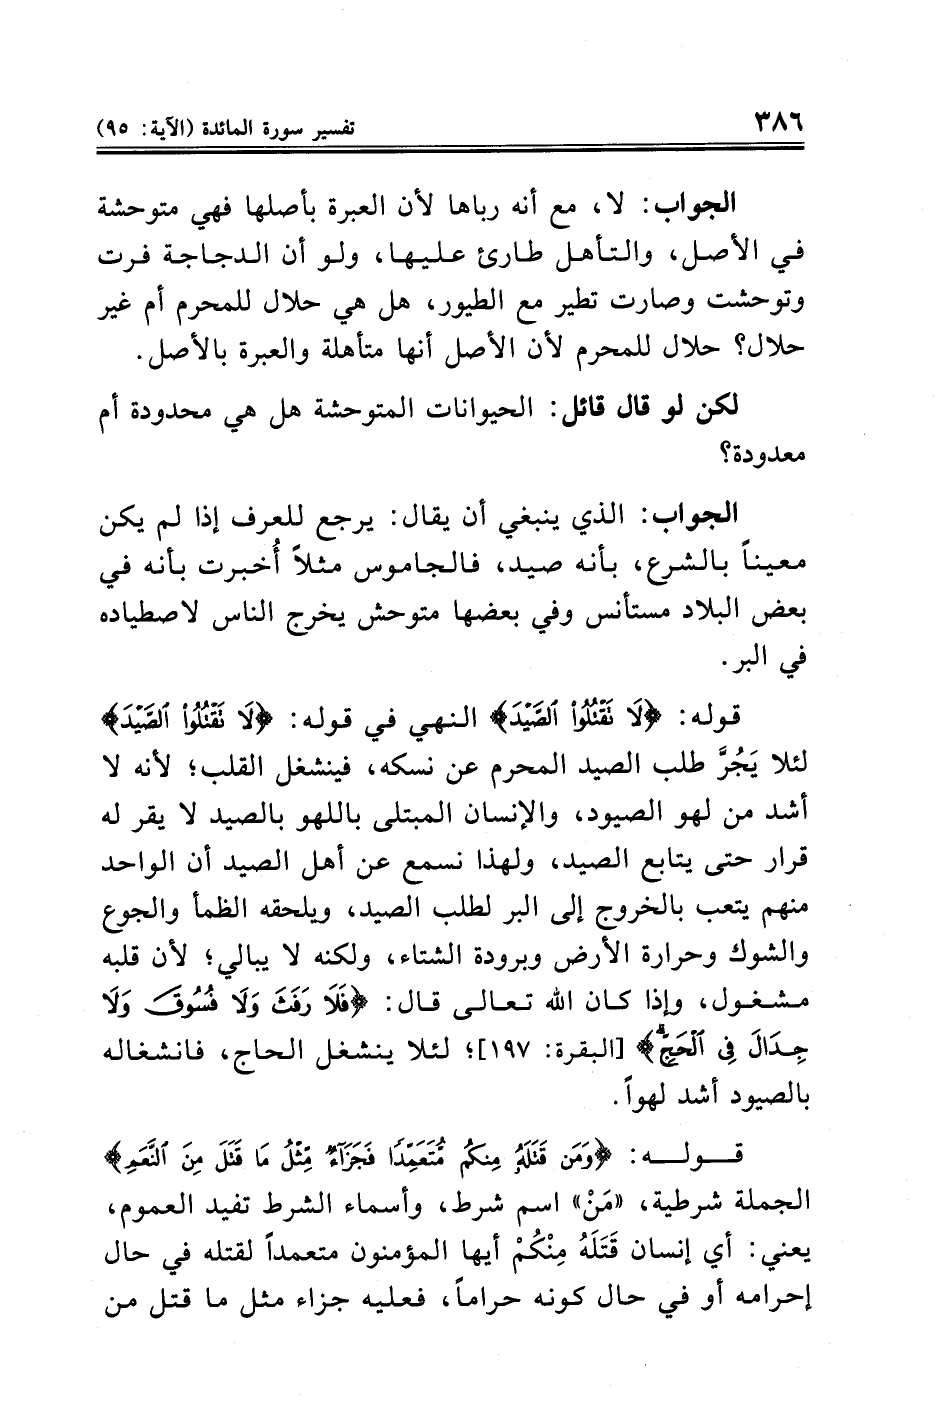 ٣٨٦ تفسير سورة المائدة (الآية: ٩٥)
الجواب: لا، مع أنه رباها لأن العبرة بأصلها فهي متوحشة
في الأصل، والتأهل طارئ عليها، ولو أن الدجاجة فرت
وتوحشت وصارت تطير مع الطيور، هل هي حلال للمحرم أم غير
حلال؟ حلال للمحرم لأن الأصل أنها متأهلة والعبرة بالأصل.
لكن لو قال قائل: الحيوانات المتوحشة هل هي محدودة أم
معدودة؟
الجواب: الذي ينبغي أن يقال: يرجع للعرف إذا لم يكن
معيناً بالشرع، بأنه صيد، فالجاموس مثلاً أُخبرت بأنه في
بعض البلاد مستأنس وفي بعضها متوحش يخرج الناس لاصطياده
في البر.
قوله: ﴿لَا نَقْتُلُوا۟ ٱلصَّيْدَ﴾ النهي في قوله: ﴿لَا نَقْتُلُوا۟ ٱلصَّيْدَ﴾
لئلا يَجُرَّ طلب الصيد المحرم عن نسكه، فينشغل القلب؛ لأنه لا
أشد من لهو الصيود، والإنسان المبتلى باللهو بالصيد لا يقر له
قرار حتى يتابع الصيد، ولهذا نسمع عن أهل الصيد أن الواحد
منهم يتعب بالخروج إلى البر لطلب الصيد، ويلحقه الظمأ والجوع
والشوك وحرارة الأرض وبرودة الشتاء، ولكنه لا يبالي؛ لأن قلبه
مشغول، وإذا كان الله تعالى قال: ﴿فَلَا رَفَثَ وَلَا فُسُوقَ وَلَا
جِدَالَ فِى ٱلْحَجِّ ۗ﴾ [البقرة: ١٩٧]؛ لئلا ينشغل الحاج، فانشغاله
بالصيود أشد لهواً.
قوله: ﴿وَمَن قَتَلَهُۥ مِنكُم مُّتَعَمِّدًا فَجَزَآءٌ مِّثْلُ مَا قَتَلَ مِنَ ٱلنَّعَمِ﴾
الجملة شرطية، «مَنْ» اسم شرط، وأسماء الشرط تفيد العموم،
يعني: أي إنسان قَتَلَهُ مِنْكُمْ أيها المؤمنون متعمداً لقتله في حال
إحرامه أو في حال كونه حراماً، فعليه جزاء مثل ما قتل من